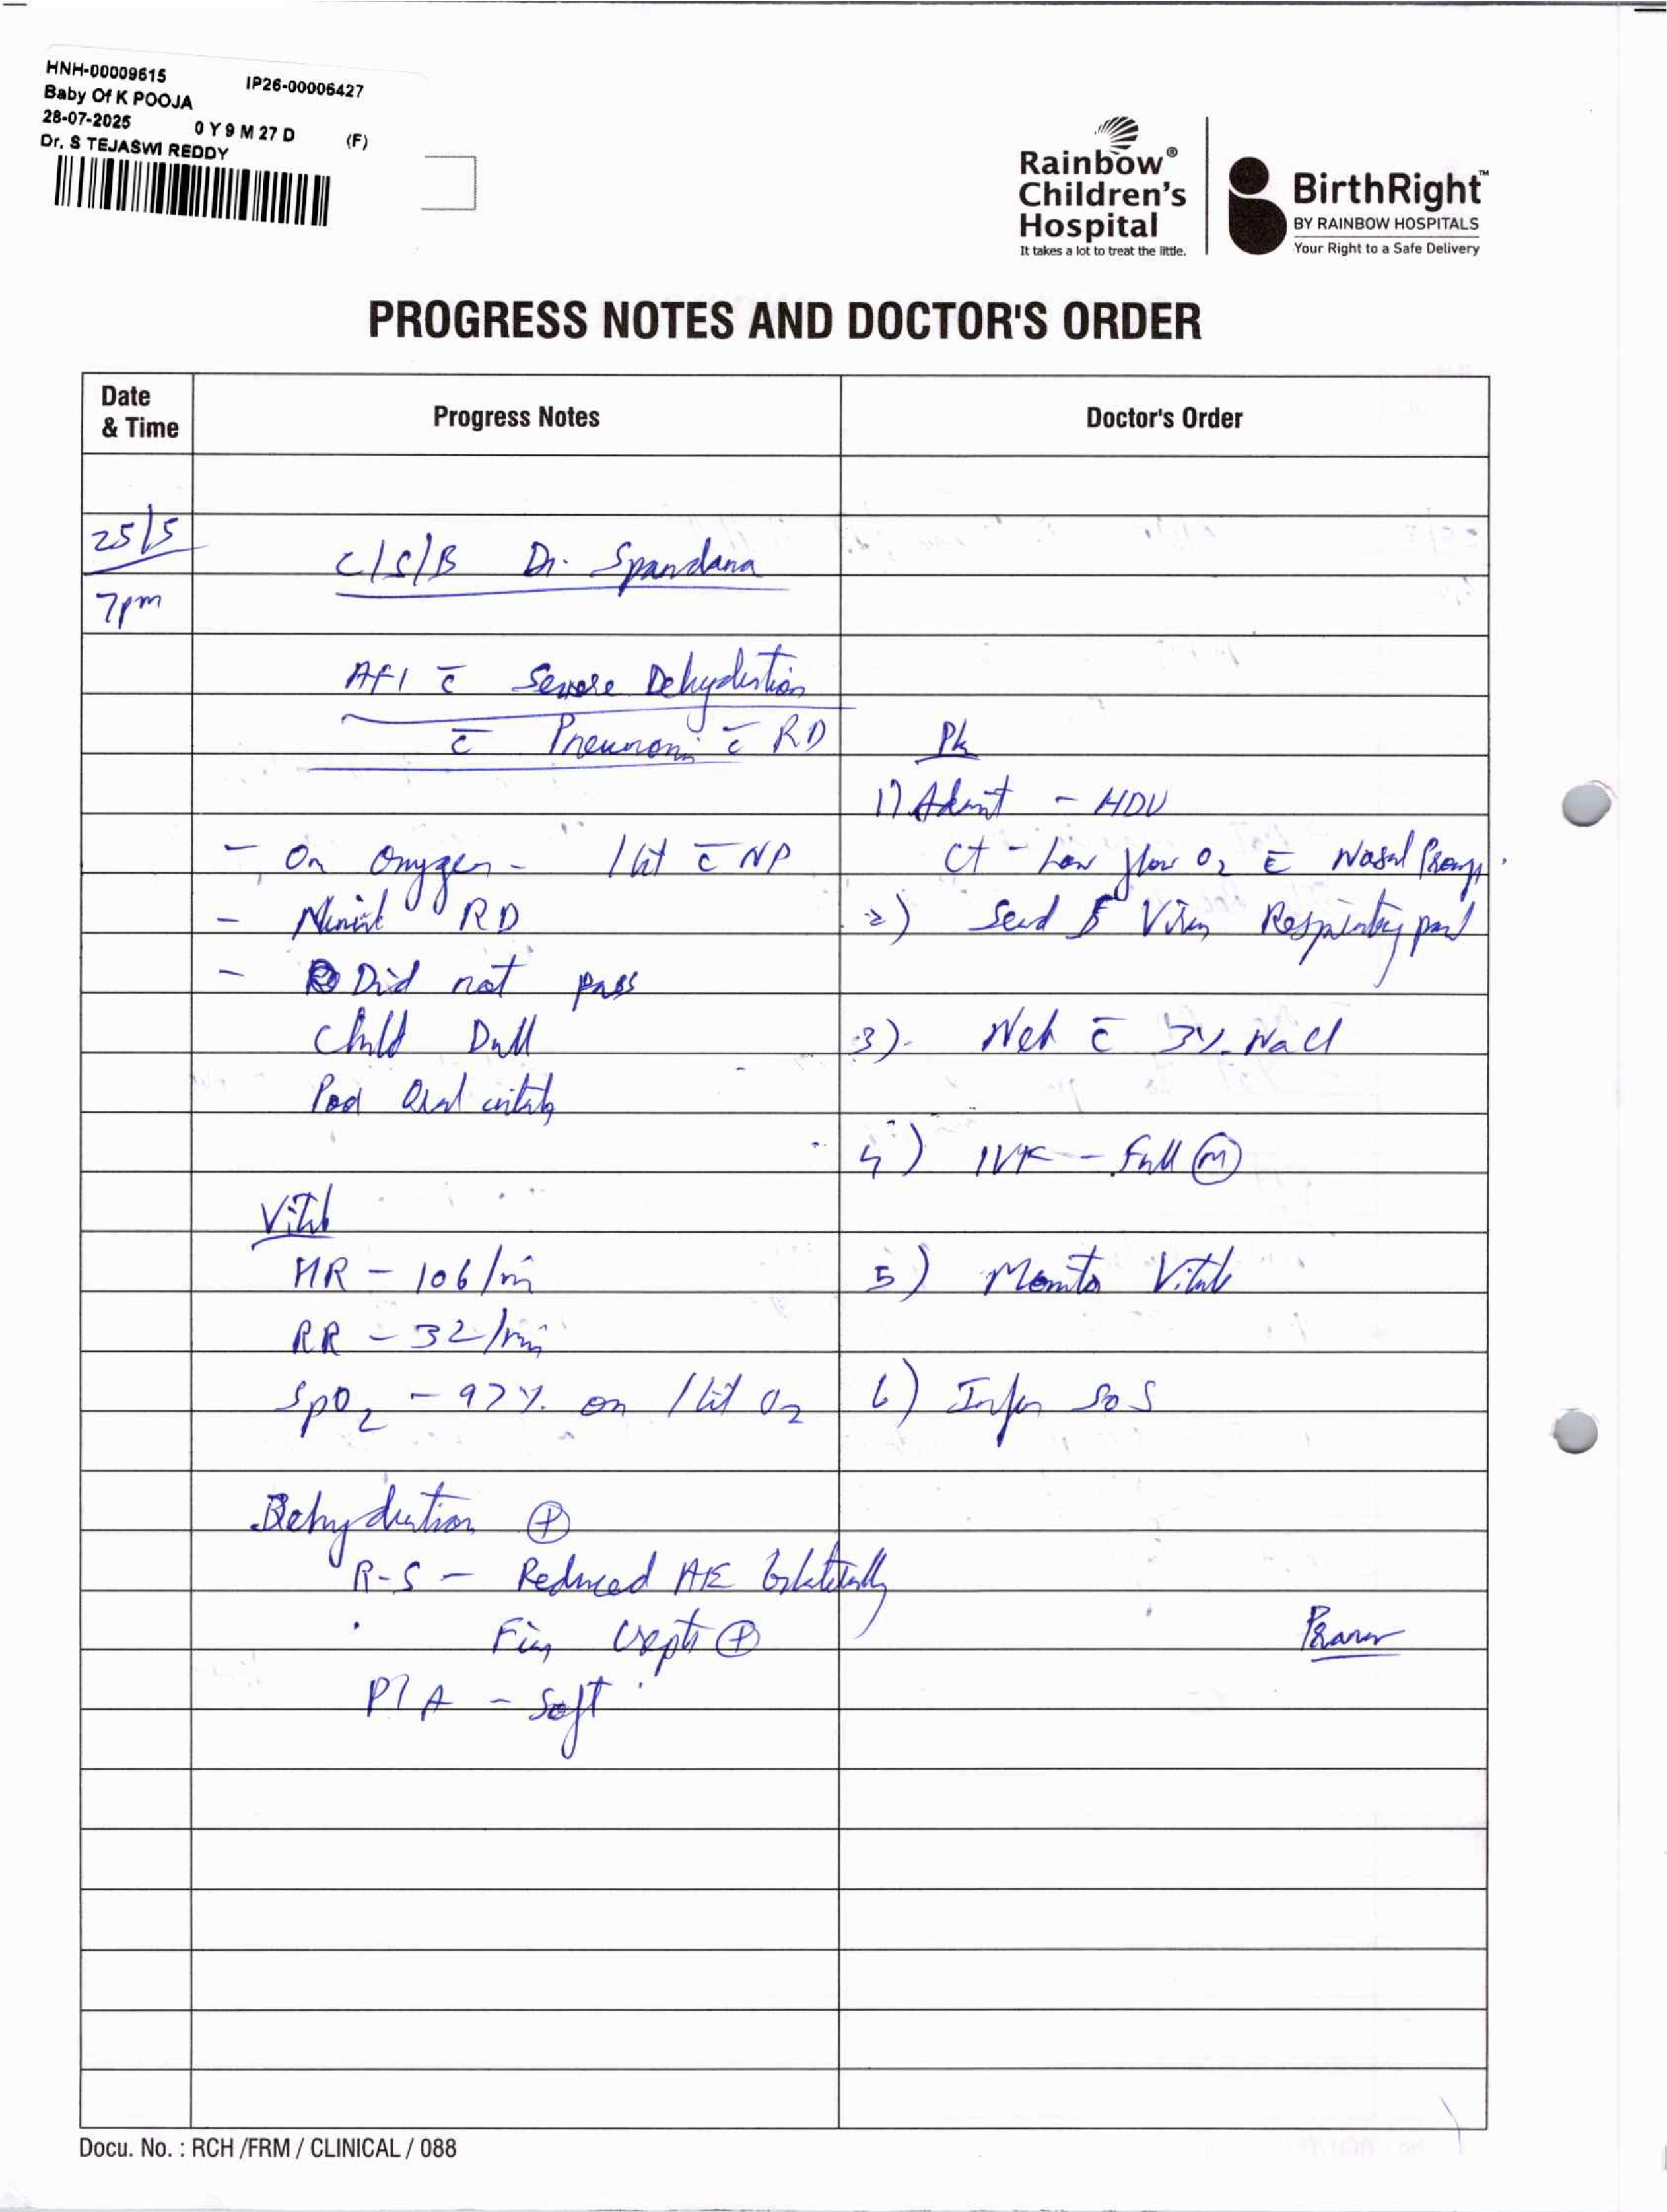 HNH-00009615 IP26-00006427
Baby Of K POOJA
28-07-2025 0 Y 9 M 27 D (F)
Dr. S TEJASWI REDDY
Rainbow®
Children's
Hospital
It takes a lot to treat the little.
BirthRight™
BY RAINBOW HOSPITALS
Your Right to a Safe Delivery
PROGRESS NOTES AND DOCTOR'S ORDER
Date & Time Progress Notes Doctor's Order
25/5
C/S/B Dr. Spandana
7pm
AFI c̄ Severe Dehydration
c̄ Pneumoni c̄ RD
1) Admit - HDU
- On Oxygen - 1 lit c̄ NP
Ct - Low flow O2 c̄ Nasal Prongs
- Minimal RD
2) Send Virus Respiratory panel
- Did not pass
Child Dull
3) Neb c̄ 3% NaCl
Poor Oral intake
4) IVF - Full (M)
Vitals
HR - 106/m
5) Monitor Vitals
RR - 32/min
SpO2 - 97% on 1 lit O2
6) Inform SOS
Dehydration ⊕
R-S - Reduced A/E bilaterally
Fine crepts ⊕
P/A - Soft
Docu. No. : RCH /FRM / CLINICAL / 088